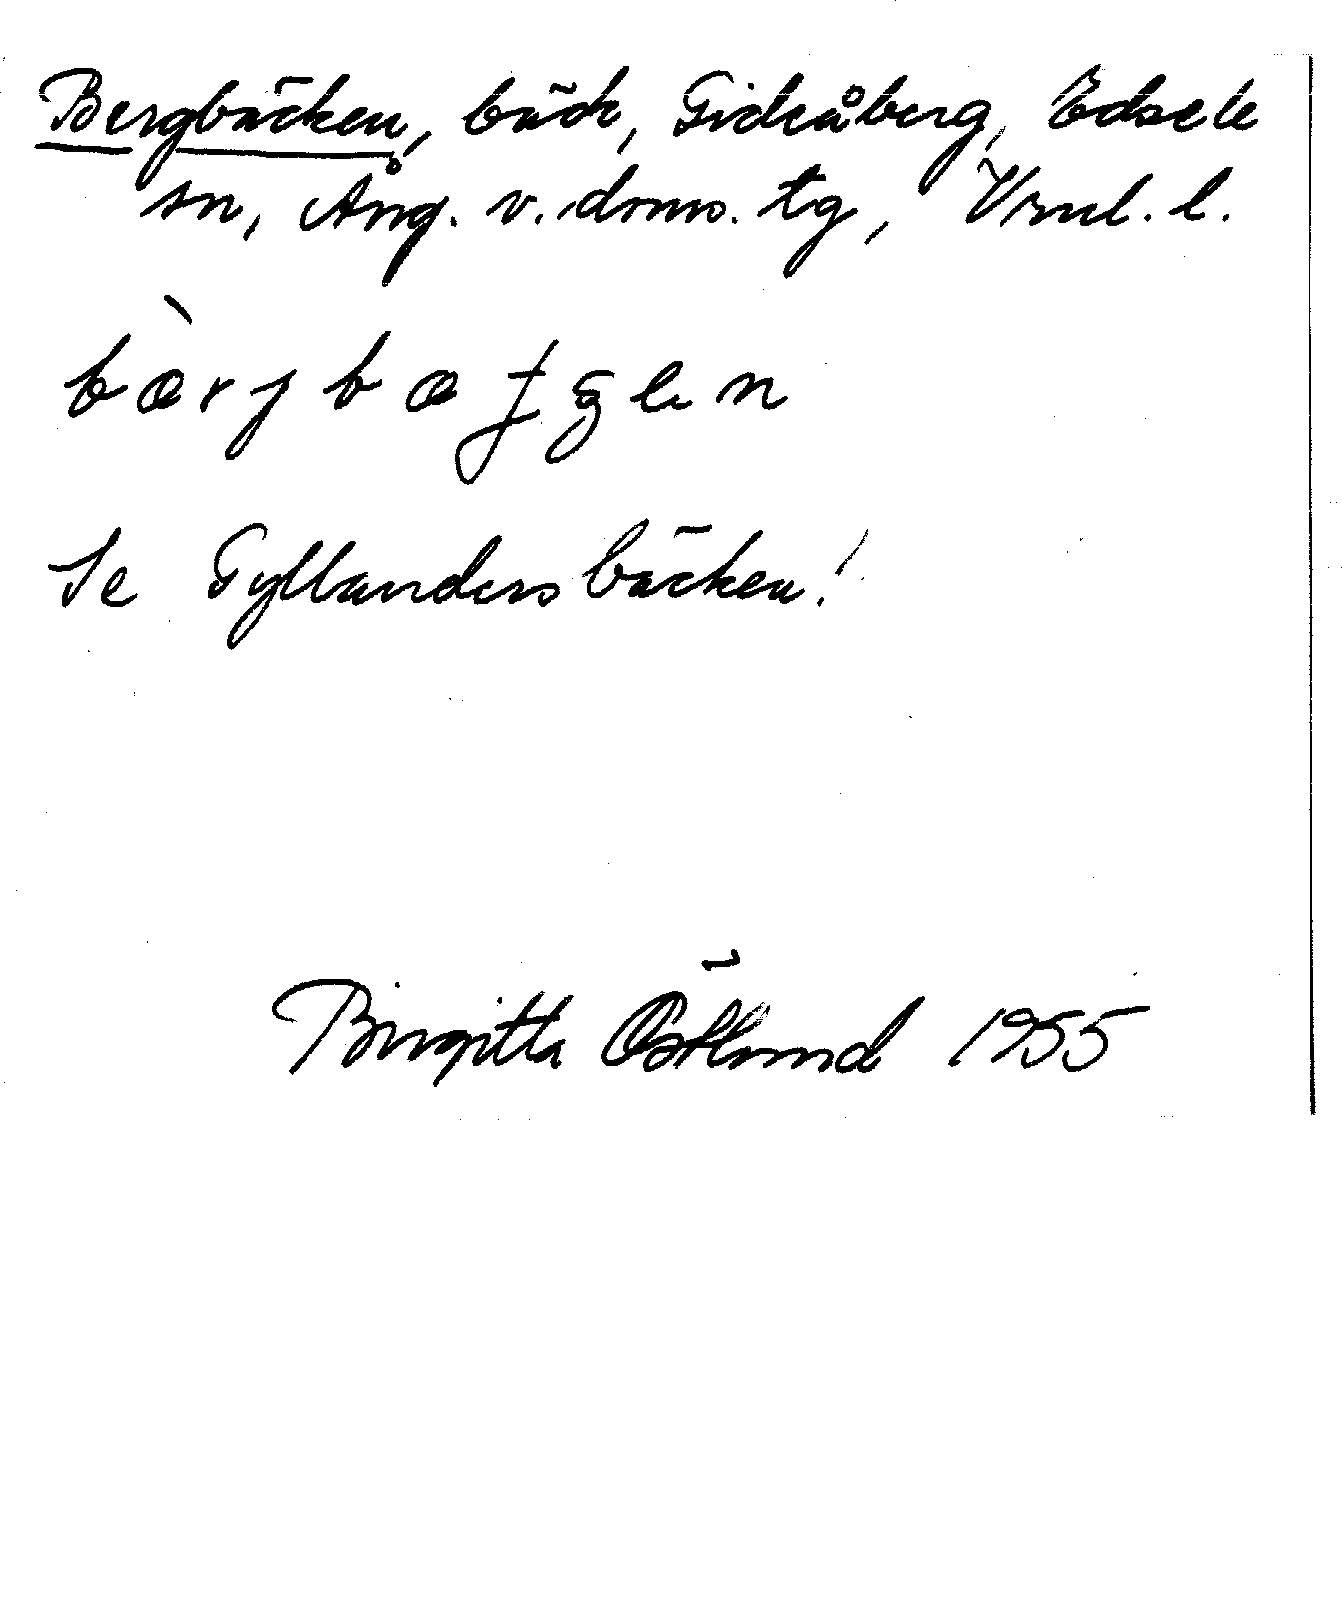 Bergbäcken, bäck, Gideåberg, Edsele
sn, Ång. v. doms. tg, Vrnl. l.
bæ̀rjbætʃen
Se Gyllandersbäcken!
Birgitta Östlund 1955